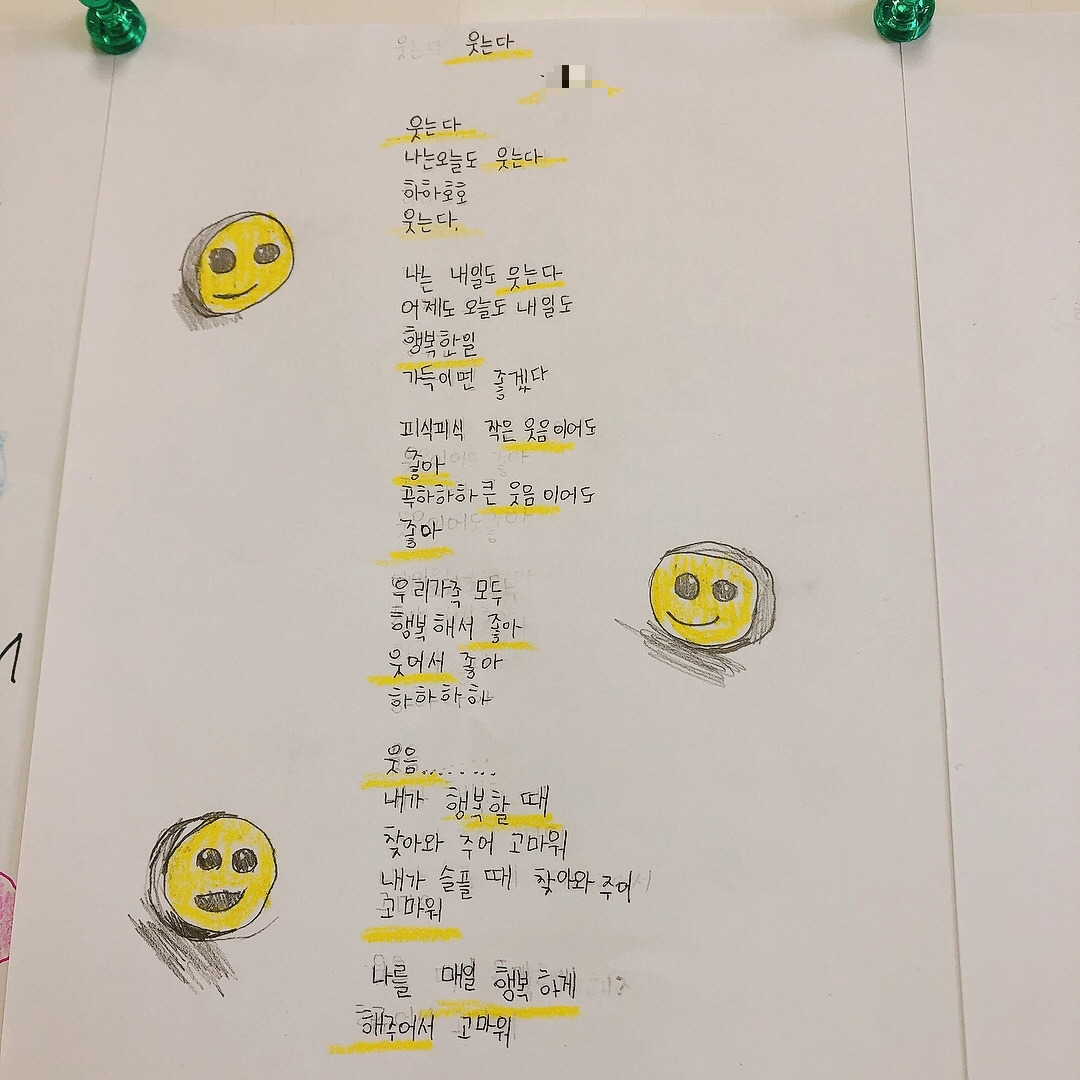 웃는다
웃는다
나는오늘도 웃는다
하하호호
웃는다.
나는 내일도 웃는다
어제도 오늘도 내일도
행복한일
가득이면 좋겠다
피식피식 작은 웃음이어도
좋아
푹하하하 큰 웃음이어도
좋아
우리가족 모두
행복해서 좋아
웃어서 좋아
햐하하하
웃음........
내가 행복할 때
찾아와 주어 고마워
내가 슬플 때 찾아와 주어
고마워
나를 매일 행복하게
해주어서 고마워